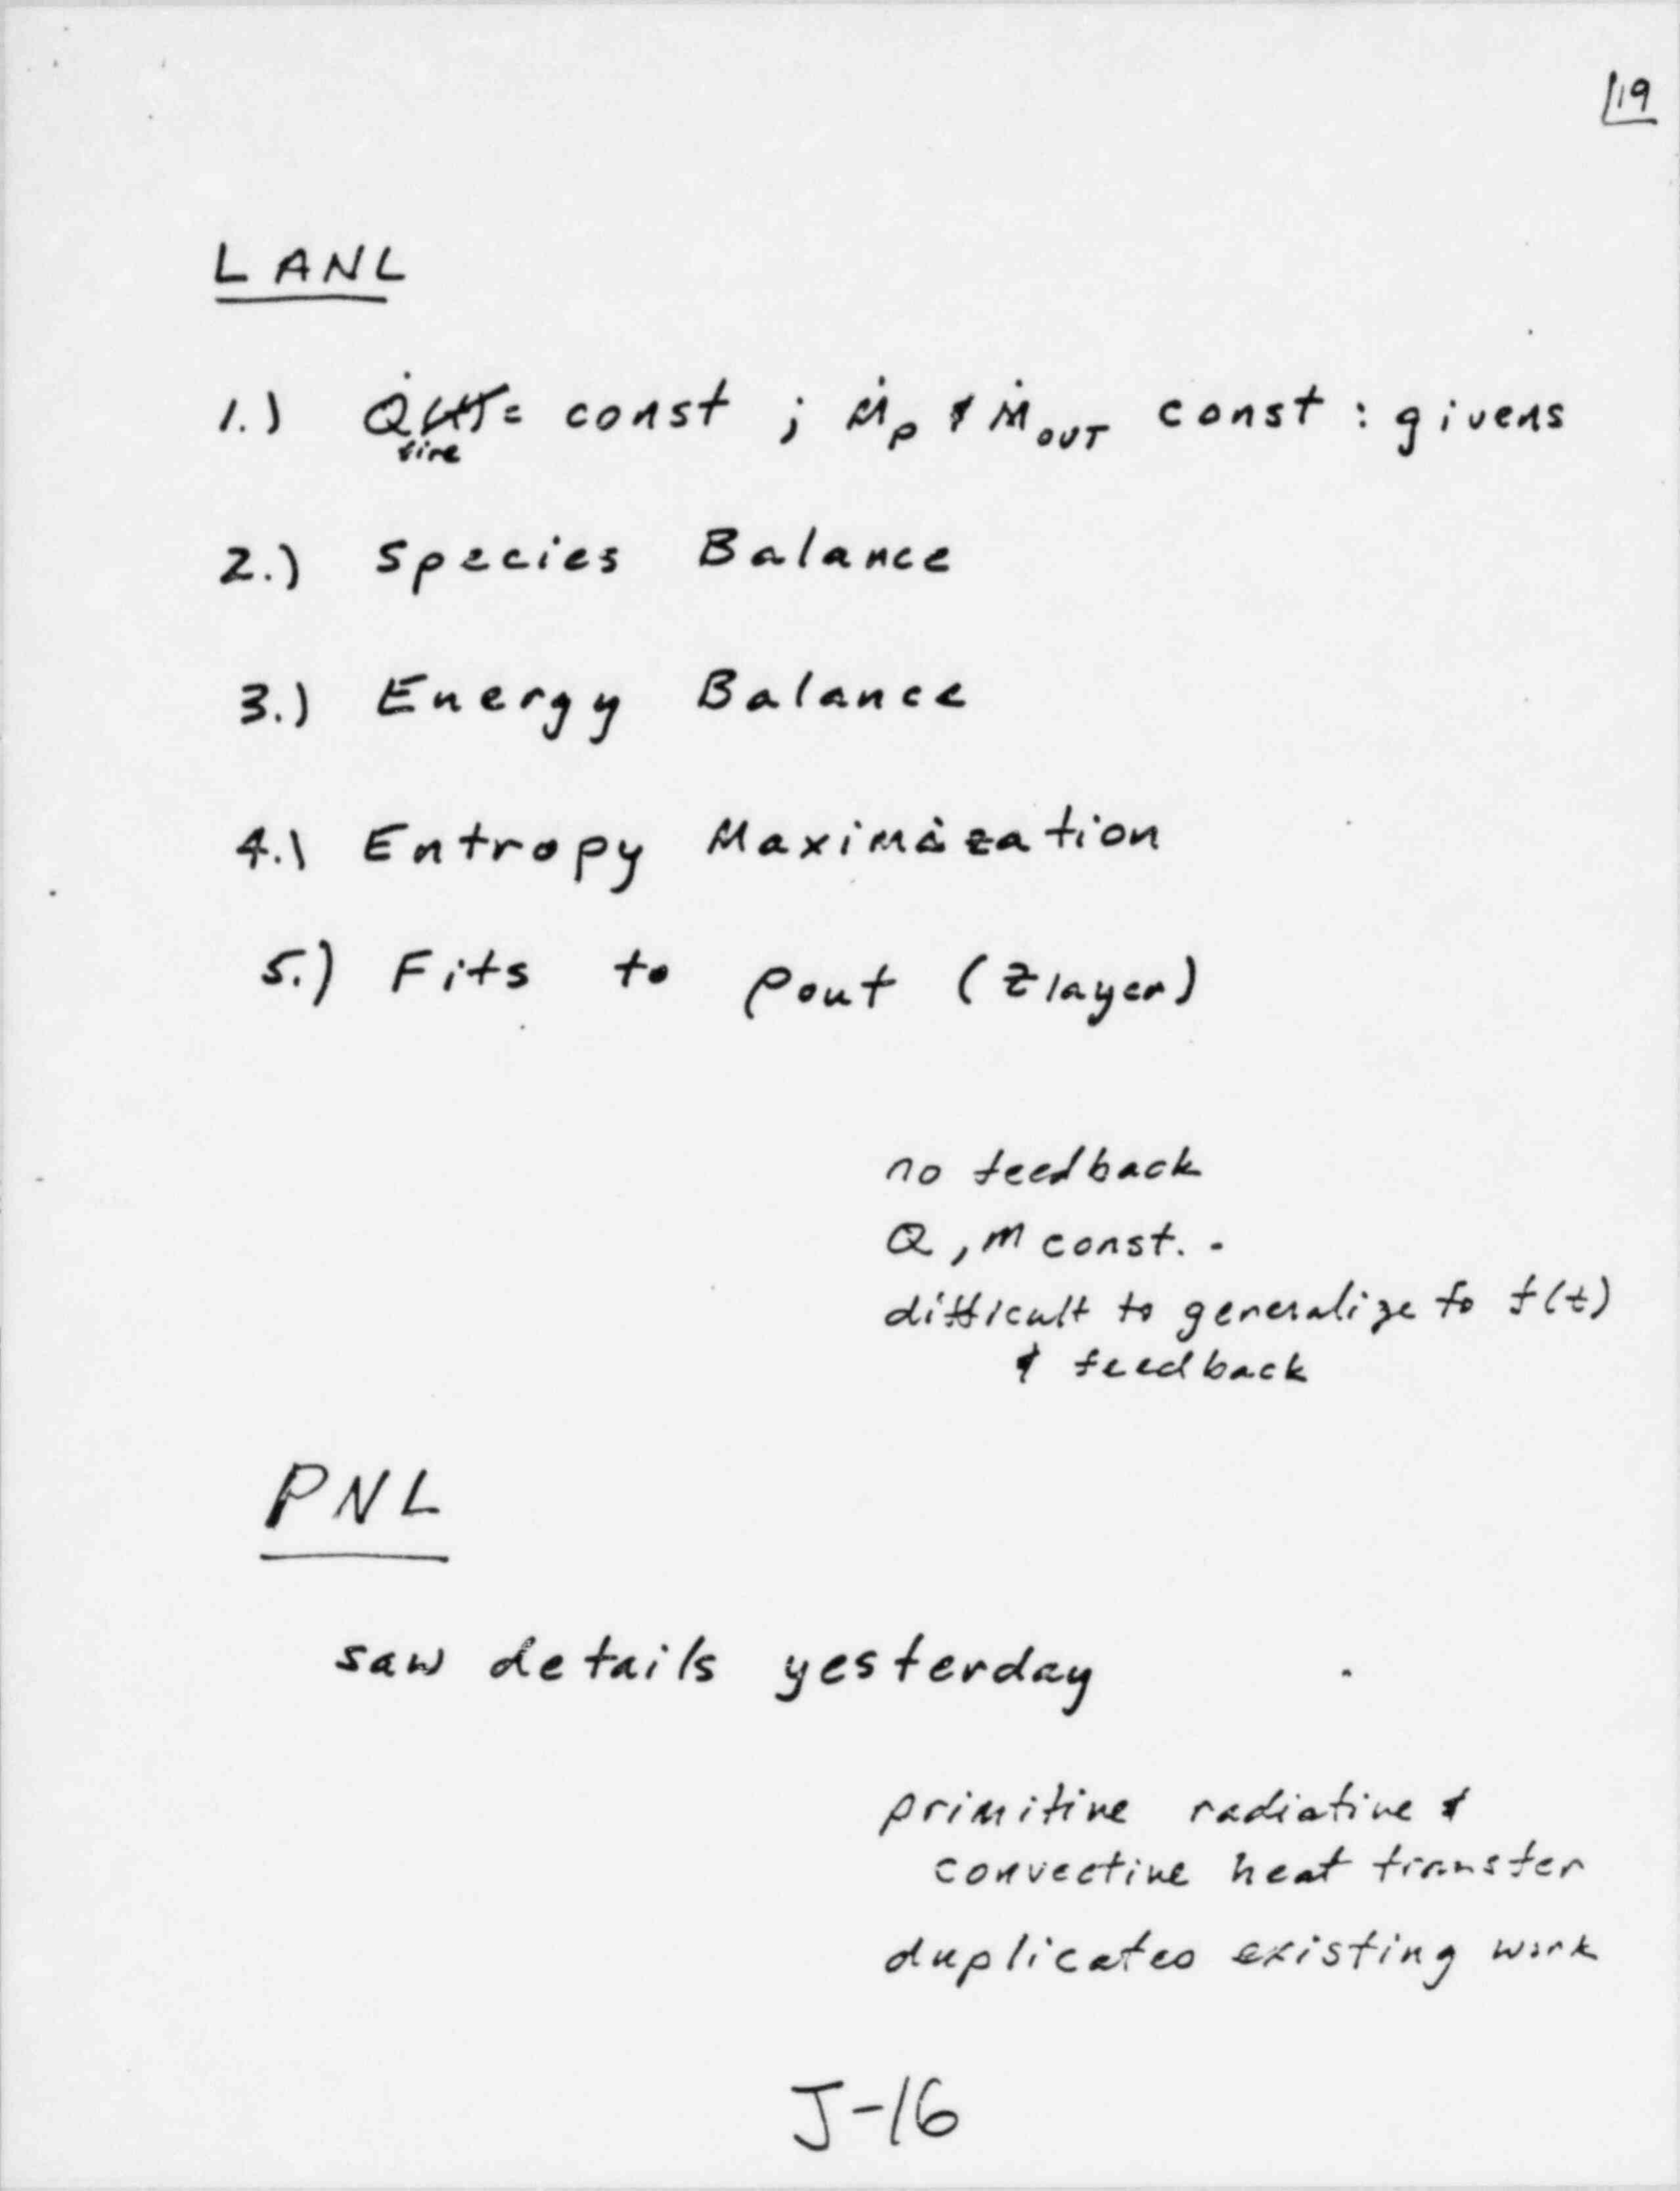 19
LANL
1.) Q̇fire = const ; Ṁp & ṀOUT const : givens
2.) Species Balance
3.) Energy Balance
4.) Entropy Maximization
5.) Fits to ρout (Zlayer)
no feedback
Q, m const. -
difficult to generalize to f(t)
& feedback
PNL
saw details yesterday
primitive radiative &
convective heat transfer
duplicates existing work
J-16